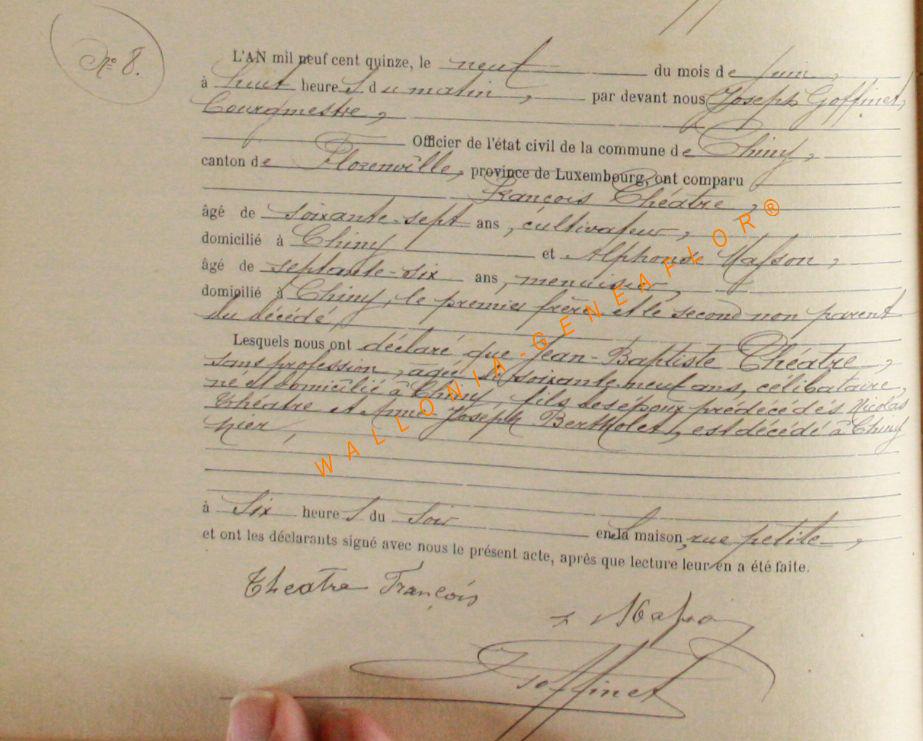 N° 8.
L'AN mil neuf cent quinze, le neuf du mois de juin,
à huit heures du matin, par devant nous Joseph Goffinet,
Bourgmestre,
Officier de l'état civil de la commune de Chiny,
canton de Florenville, province de Luxembourg, ont comparu
François Théâtre,
âgé de soixante-sept ans, cultivateur,
domicilié à Chiny et Alphonse Masson,
âgé de septante-six ans, menuisier,
domicilié à Chiny, le premier frère et le second non parent
du décédé,
Lesquels nous ont déclaré que Jean-Baptiste Théâtre,
sans profession, âgé de soixante neuf ans, célibataire,
né et domicilié à Chiny, fils des époux prédécédés Nicolas
Théâtre et Anne Joseph Bertholet, est décédé à Chiny
hier,
à six heures du soir en sa maison, rue petite,
et ont les déclarants signé avec nous le présent acte, après que lecture leur en a été faite.
Theatre François
Masson
J Goffinet
WALLONIA-GENEAFLOR®